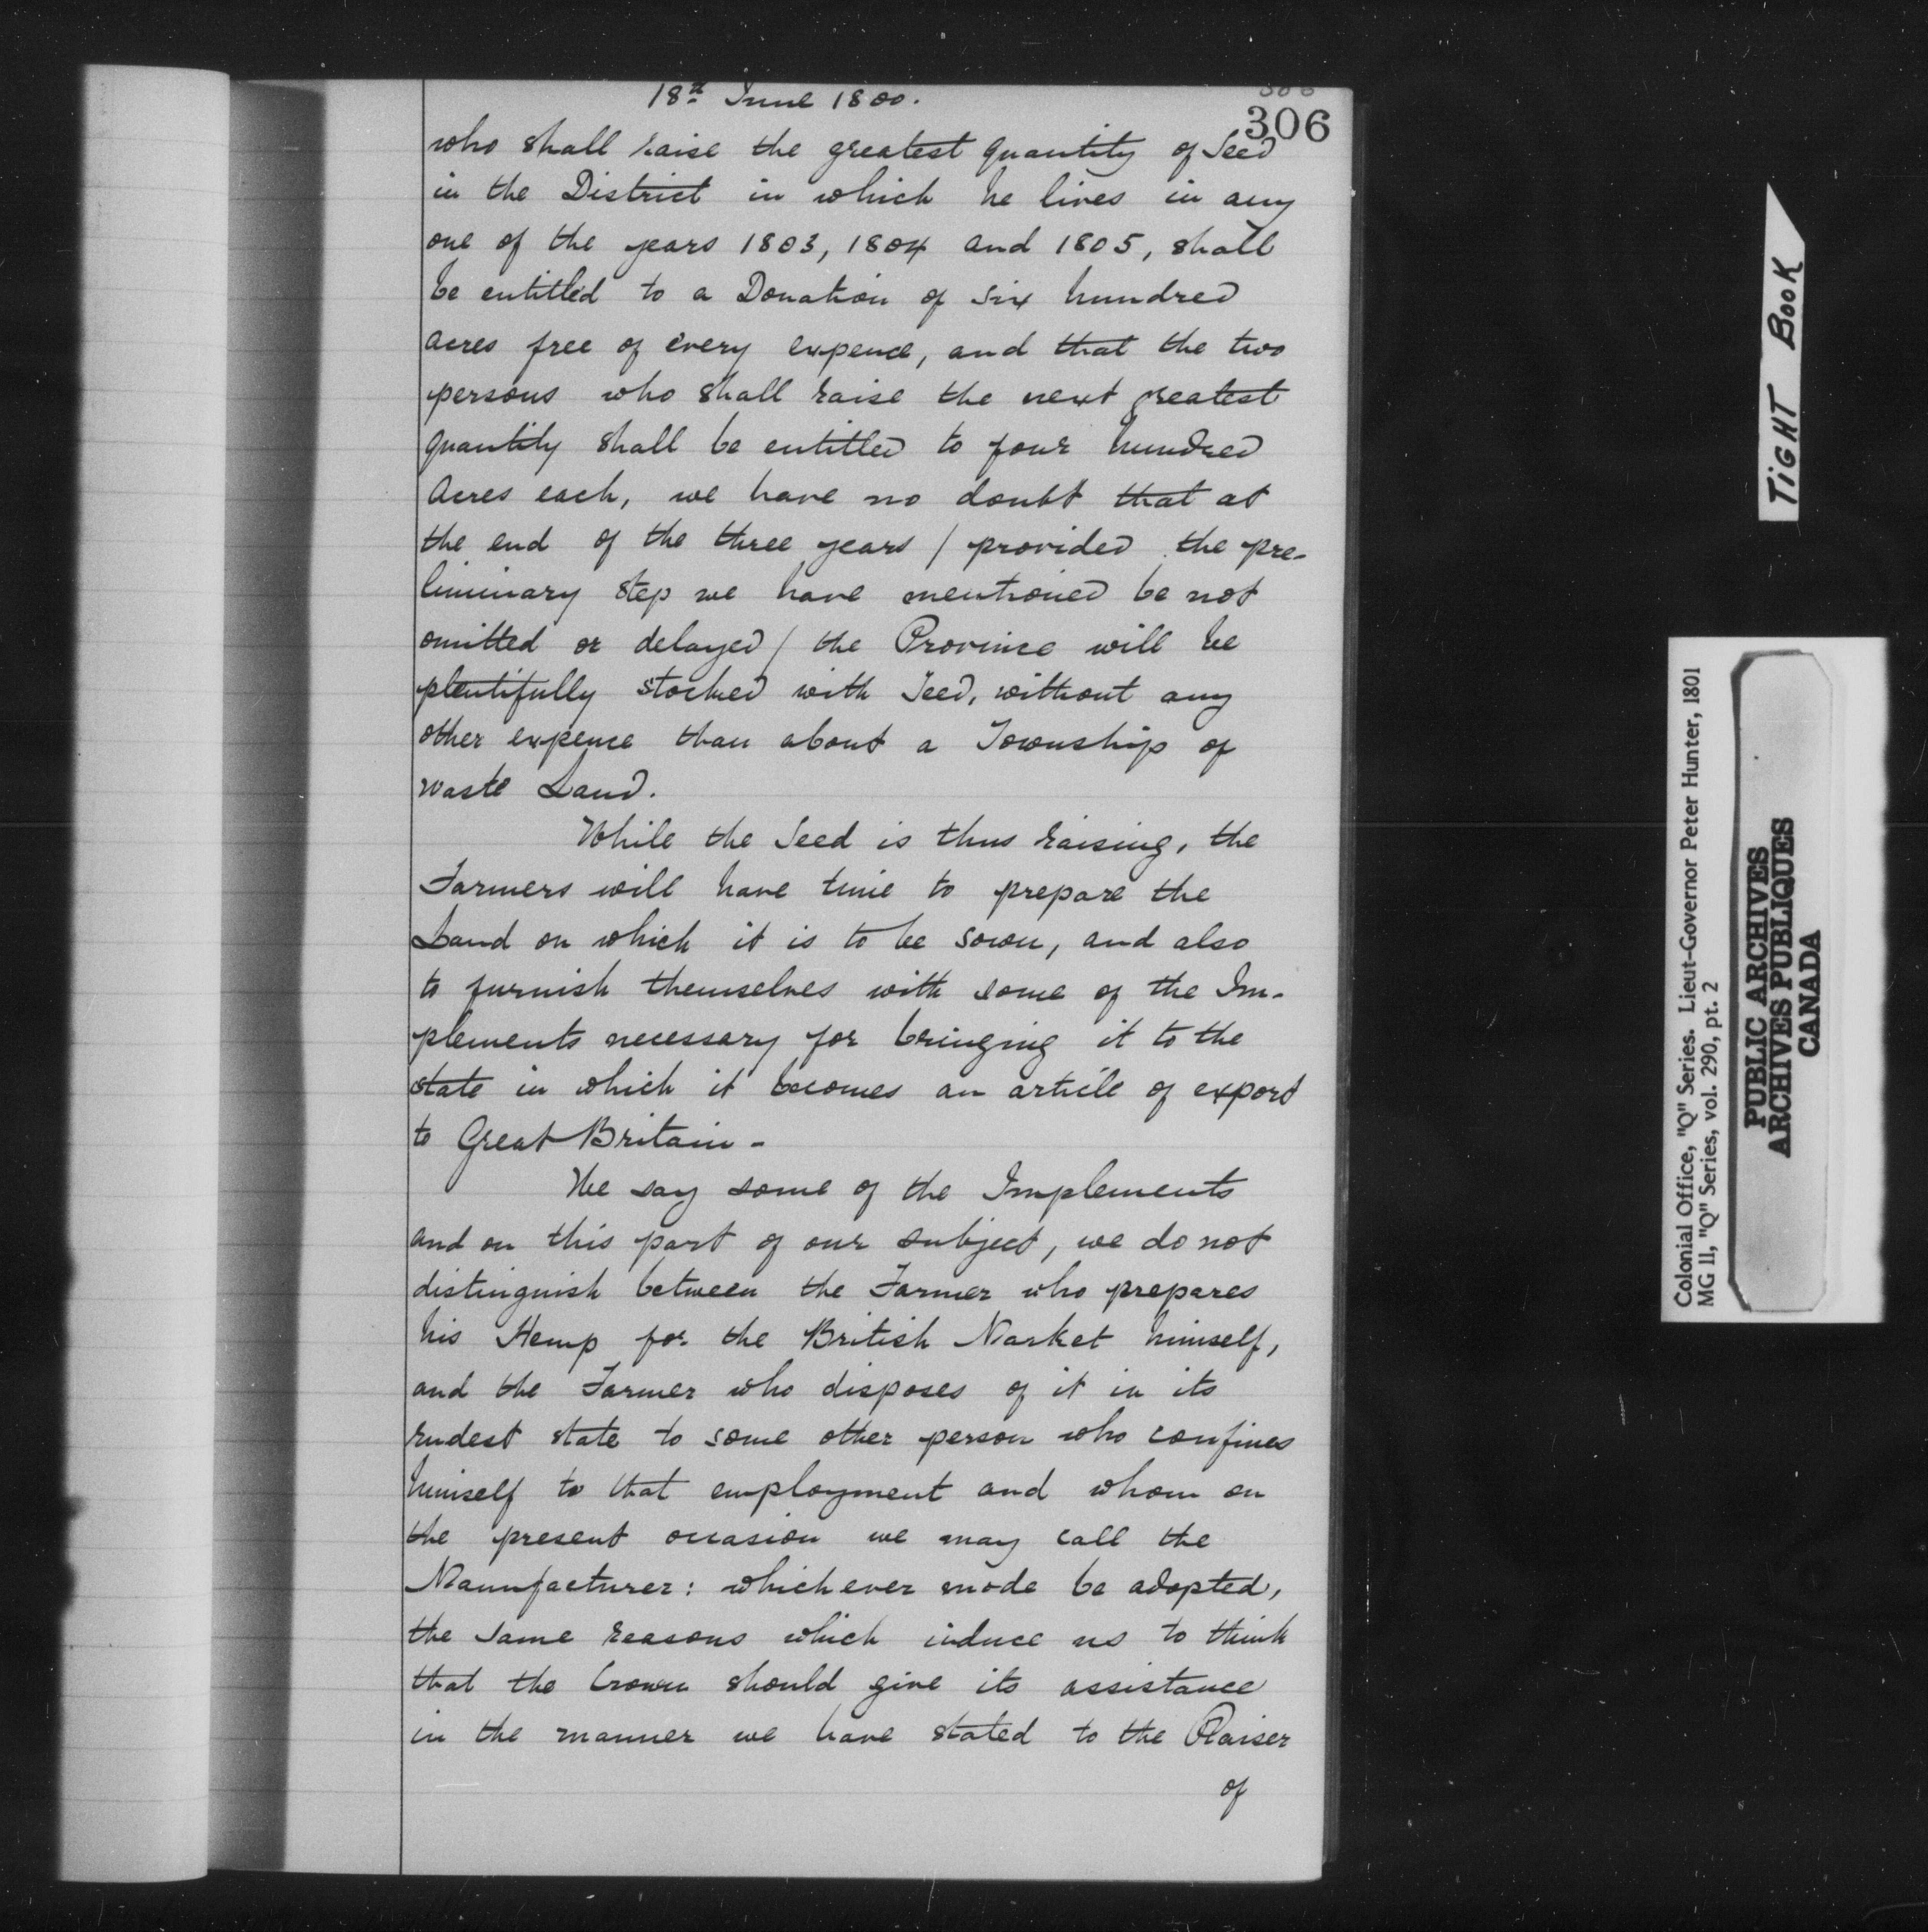 18th June 1800.
306
who shall raise the greatest quantity of Seed
in the District in which he lives in any
one of the years 1803, 1804 and 1805, shall
be entitled to a Donation of six hundred
acres free of every expence, and that the two
persons who shall raise the next greatest
quantity shall be entitled to four hundred
Acres each, we have no doubt that at
the end of the three years / provided the pre-
liminary step we have mentioned be not
omitted or delayed / the Province will be
plentifully stocked with Seed, without any
other expence than about a Township of
waste Land.
While the Seed is thus raising, the
Farmers will have time to prepare the
Land on which it is to be sown, and also
to furnish themselves with some of the Im-
plements necessary for bringing it to the
state in which it becomes an article of export
to Great Britain -
We say some of the Implements
and on this part of our subject, we do not
distinguish between the Farmer who prepares
his Hemp for the British Market himself,
and the Farmer who disposes of it in its
rudest state to some other person who confines
himself to that employment and whom on
the present occasion we may call the
Manufacturer: whichever mode be adopted,
the same reasons which induce us to think
that the Crown should give its assistance
in the manner we have stated to the Raiser
of
TIGHT BOOK
Colonial Office, "Q" Series. Lieut-Governor Peter Hunter, 1801
MG 11, "Q" Series, vol. 290, pt. 2
PUBLIC ARCHIVES
ARCHIVES PUBLIQUES
CANADA